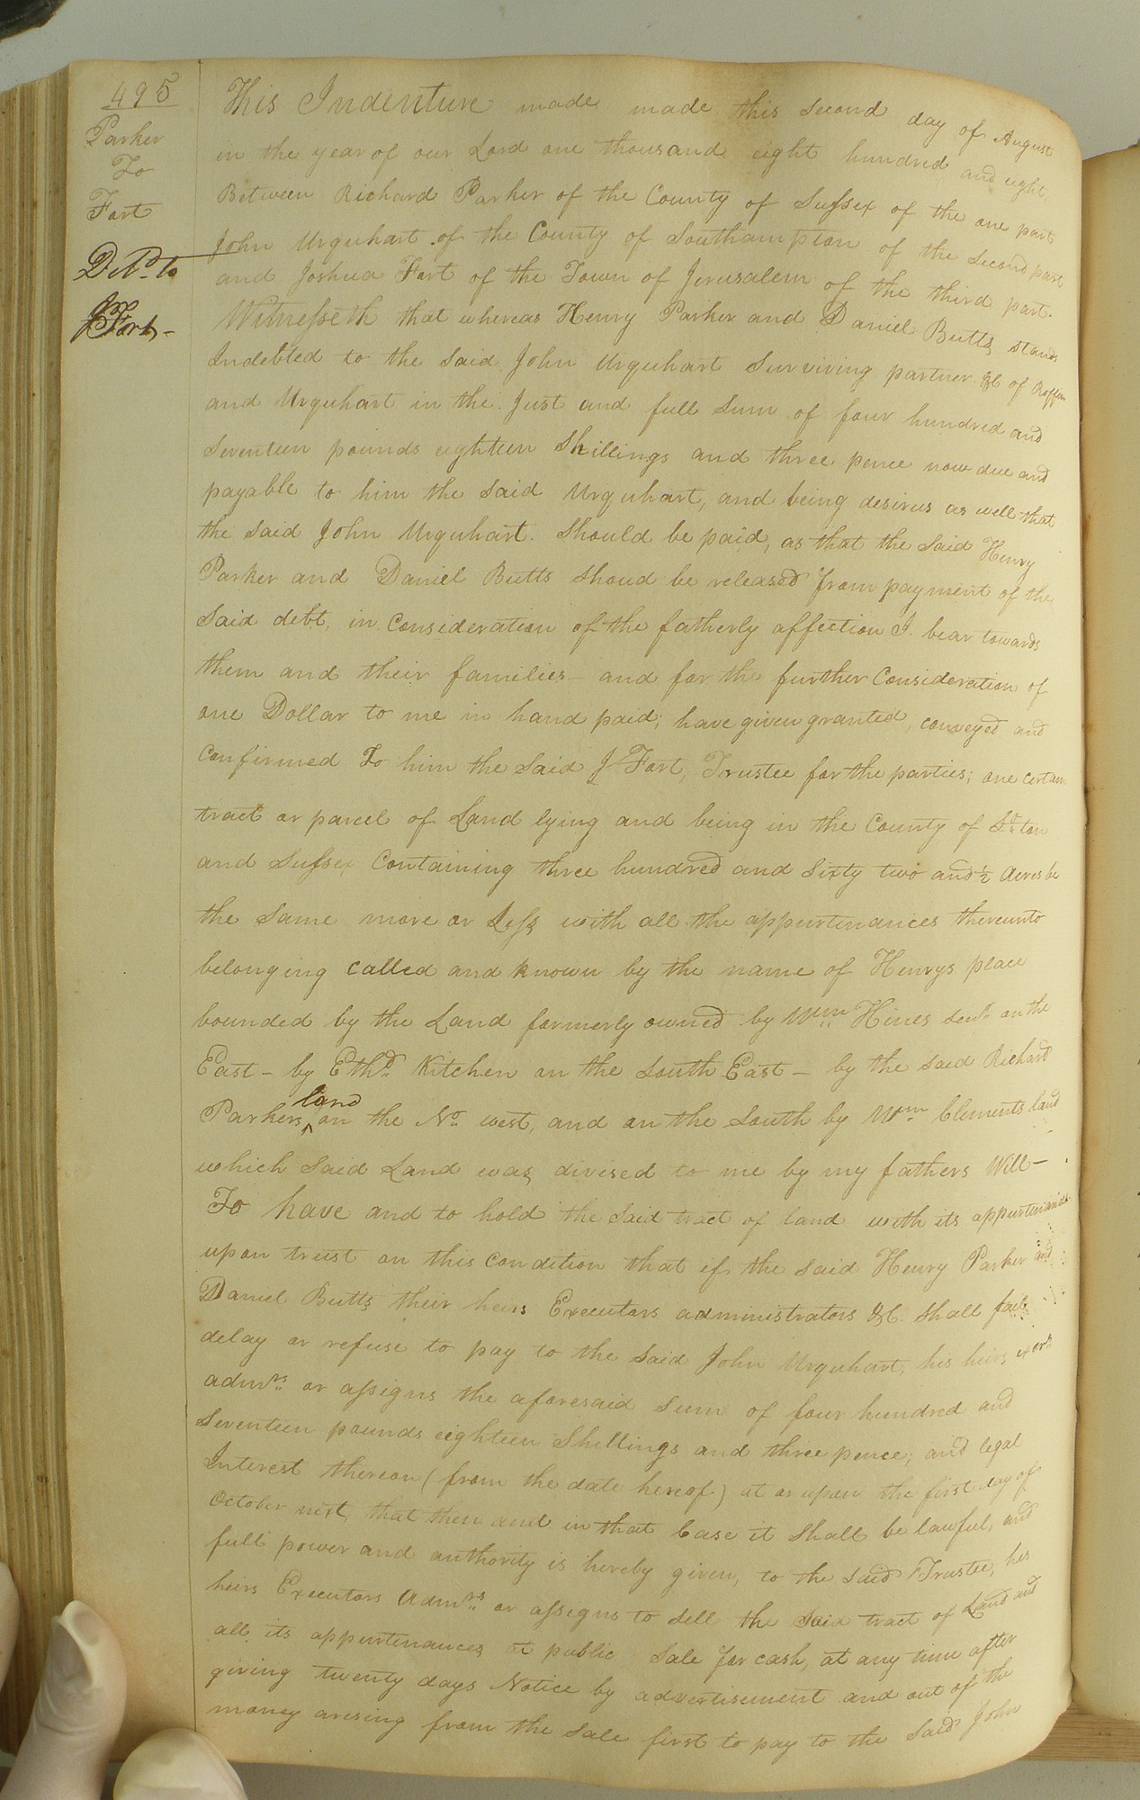 495
Parker
To
Fort
Del'd to
J Fort –
This Indenture made made this second day of August
in the year of our Lord one thousand eight hundred and eight
Between Richard Parker of the County of Sussex of the one part
John Urquhart of the County of Southampton of the second part
and Joshua Fort of the Town of Jerusalem of the third part.
Witnesseth that whereas Henry Parker and Daniel Butts stands
Indebted to the said John Urquhart surviving partner &C of
and Urquhart in the Just and full sum of four hundred and
seventeen pounds eighteen shillings and three pence now due and
payable to him the said Urquhart, and being desirus as well that
the said John Urquhart. should be paid, as that the said Henry
Parker and Daniel Butts shoud be released from payment of the
said debt, in Consideration of the fatherly affection I bear towards
them and their families – and for the further Consideration of
one Dollar to me in hand paid; have given granted, conveyed and
Confirmed To him the said J Fort, Trustee for the parties; one certain
tract or parcel of Land lying and being in the County of So ton
and Sussex Containing three hundred and Sixty two and ½ Acres be
the same more or Less with all the appurtenances thereunto
belonging called and known by the name of Henrys place
bounded by the Land formerly owned by Wm Hines senr on the
East – by Ethd Kitchen on the South East – by the said Richard
Parkers land on the No west, and on the South by Wm Clements land
which said Land was divised to me by my fathers Will –
To have and to hold the said tract of land with its appurtenances
upon trust on this condition that if the said Henry Parker and
Daniel Butts their heirs Executors administrators &C. shall fail
delay or refuse to pay to the said John Urquhart, his heirs exors
admrs or assigns the aforesaid sum of four hundred and
Seventeen pounds eighteen Shillings and three pence; and legal
Interest thereon (from the date hereof) at or upon the first day of
October next, that then and in that Case it shall be lawful, and
full power and authority is hereby given, to the said Trustee, his
heirs Executors Admrs or assigns to sell the said tract of Land and
all its appurtenances at public Sale for cash, at any time after
giving twenty days Notice by advertisement and out of the
money arising from the sale first to pay to the said John